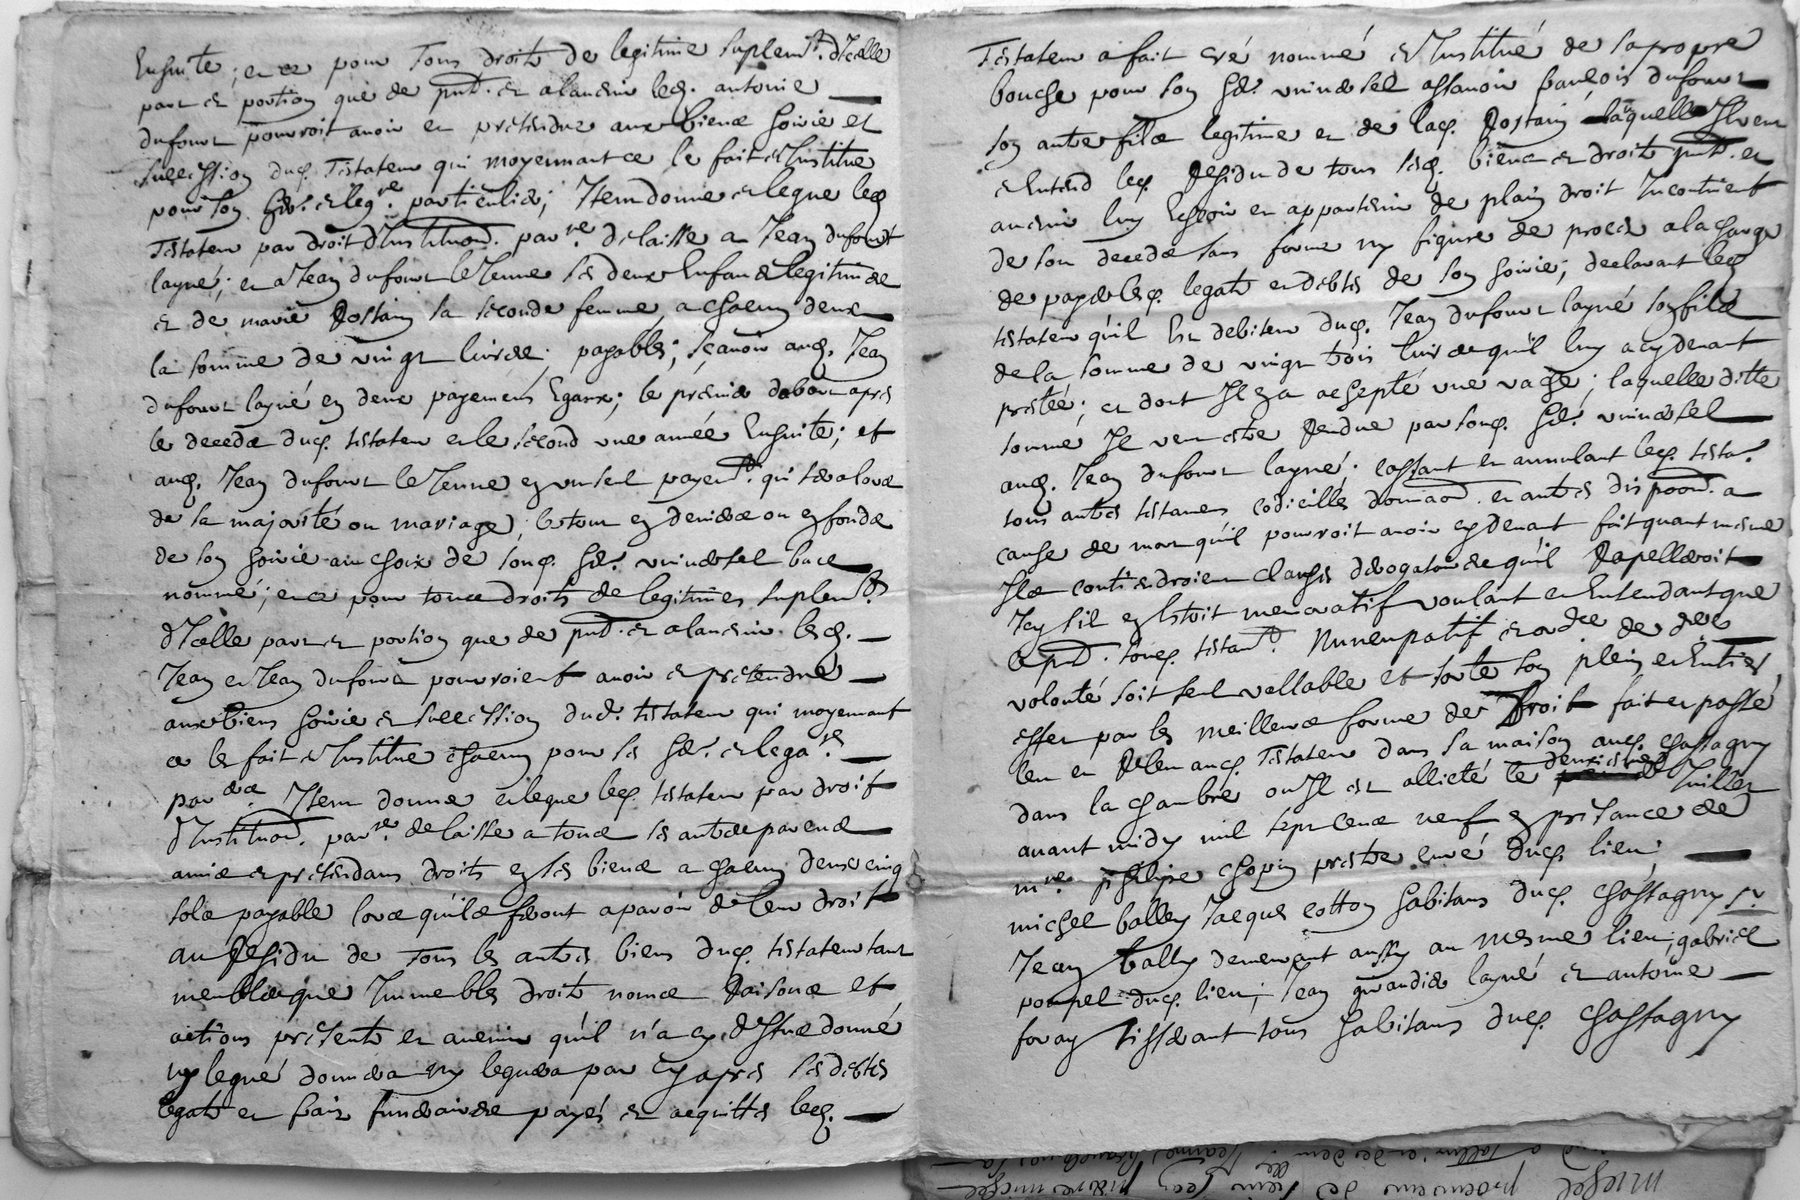 Ensuite; et ce pour tous droits de legitime suplemt. d'Icelle
part et portion que de pnt. et aladvenir led. antoine
dufour pourroit avoir et pretendre aux biens hoirie et
succession dud. Testateur qui moyennant ce le fait et Institue
pour son her. et legre. particulier; Item donne et legue led
Testateur par droit d'Instituon. parre. delaisse a Jean dufour
layné; et a Jean dufour le Jeune ses deux Enfans legitimes
et de marie Rostain sa seconde femme, a chacun deux
la somme de vingt livres; payables; sçavoir aud. Jean
dufour layné en deux payemens Egaux; le premier dabort apres
le decedz dud. testateur et le second une année Ensuite; et
aud. Jean dufour le Jeune en un seul payemt. qui sera lors
de sa majorité ou mariage; le tout en deniers ou en fonds
de son hoirie au choix de sond. her. universel bace
nommé; et ce pour tous droits de legitimes suplemt.
d'Icelle part et portion que de pnt. et aladvenir lesd.
Jean et Jean dufour pourroient avoir et pretendre
aux biens hoirie et succession dud. testateur qui moyennant
ce les fait et Institue chacun pour ses her. et legares.
parers. Item donne et legue led. testateur par droit
d'Instituon. parre. delaisse a tous ses autres parens
amis et pretendans droits en ses biens a chacun deux cinq
sols payable lors qu'ils feront aparoir de leur droit
au Residu de tous les autres biens dud. testateur tant
meubles que Immeubles droits noms Raisons et
actions presents et avenir qu'il n'a cy dessus donné
ny legué donnera ny leguera par cy apres ses debtes
legats et frais funeraires payés et acquittés led.
Testateur a fait créé nommé et Institué de sa propre
bouche pour son her. universel assavoir françois dufour
son autre fils legitime et de lad. Rostain laquelle Il veut
et Entend led. Residu de tous sesd. biens et droits pnt. et
avenir luy Echoir et appartenir de plain droit Incontinent
de son decedz sans forme ny figure de proces a la charge
de payer lesd. legats et debtes de son hoirie; declarant led
testateur qu'il Est debiteur dud. Jean dufour layné son fils
de la somme de vingt trois livres qu'il luy a cy devant
prestée; et dont Il en a achepté une vache; laquelle ditte
somme Il veut estre Rendue par sond. her. universel
aud. Jean dufour layné; cassant et annulant led. testar.
tous autres testamens codicilles donnaon. et autres dispoon. a
cause de mort qu'il pourroit avoir cy devant fait quant mesme
Ils contiendroient clauses derogatoires qu'il Rapelleroit
Icy s'il en Estoit memoratif voulant et Entendant que
le pnt. sond. testamt. Nuncupatif et ordce de dere
volonté soit seul vallable et sorte son plein et Entier
effet par les meilleure forme de Droit fait et passé
leu et Releu aud. Testateur dans sa maison aud. chassagny
dans la chambre ou Il est allicté le deuxiesme Juillet
avant midy mil sept cens neuf en presance de
mre. philipe chopin prestre curé dud. lieu;
michel balley Jacques cotton habitans dud. chassagny sr.
Jean bally demeurant aussy au mesme lieu; gabriel
poupel dud. lieu; Jean grandier layné et antoine
foray tisserant tous habitans dud. chassagny